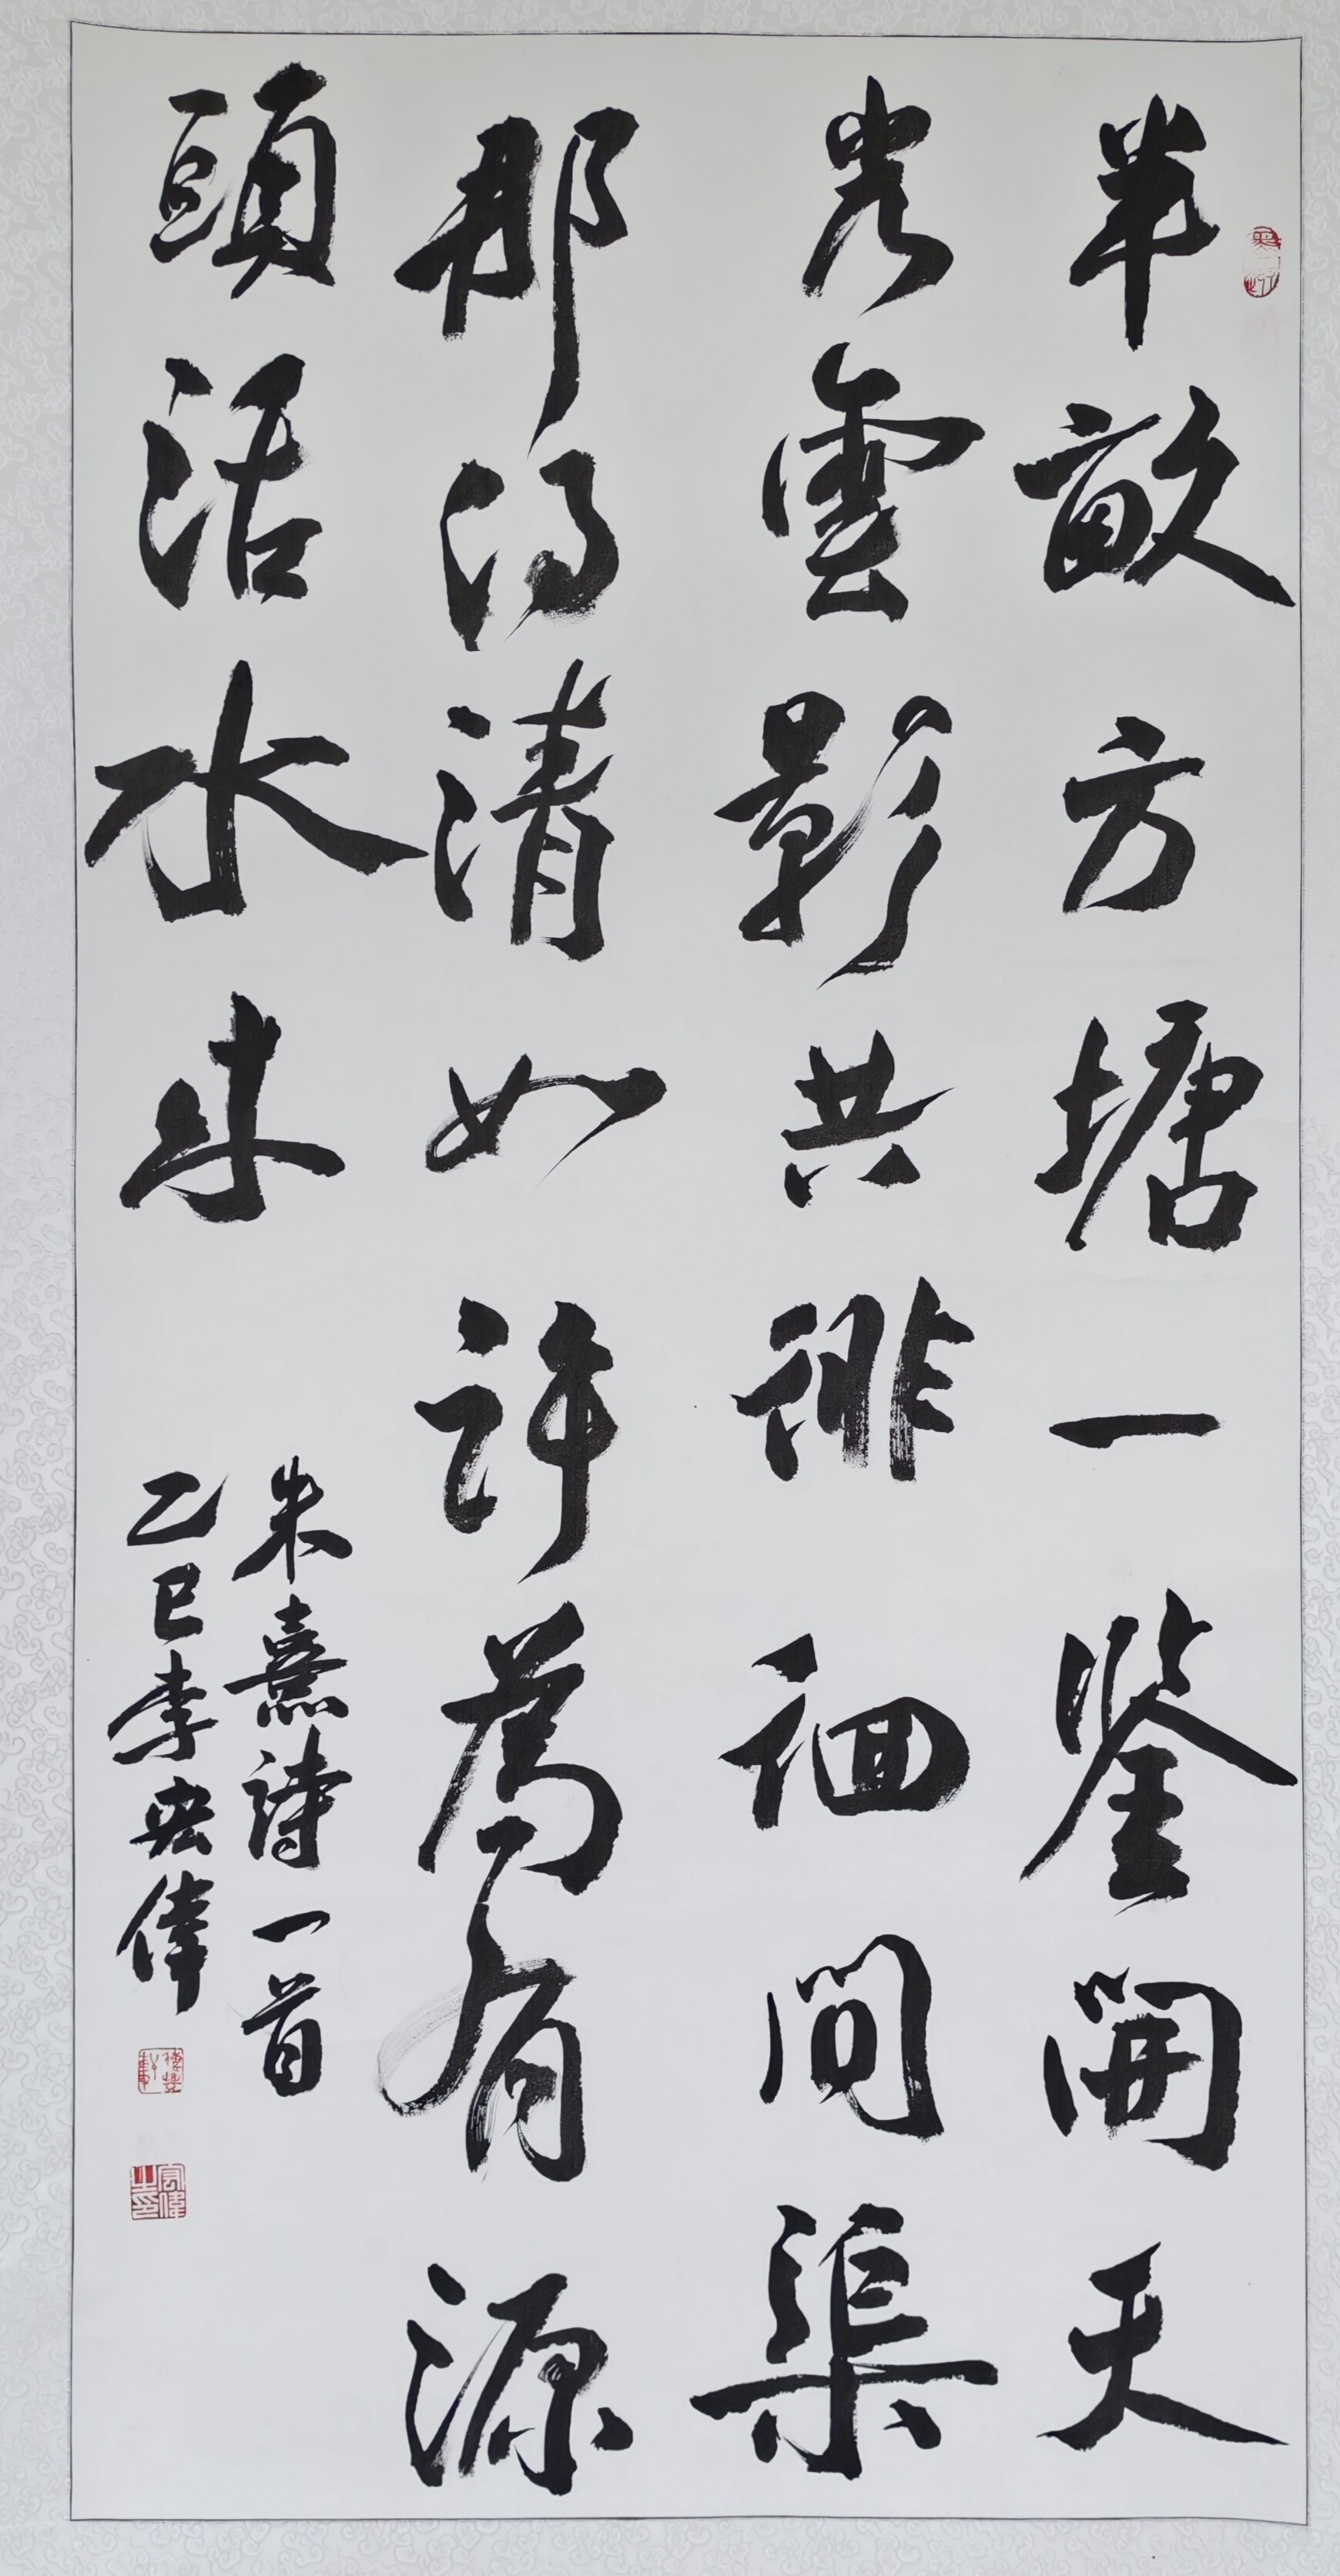 半畝方塘一鉴開天
光雲影共徘徊問渠
那得清如許為有源
頭活水来
朱熹詩一首
乙巳李宏偉
宏偉之印